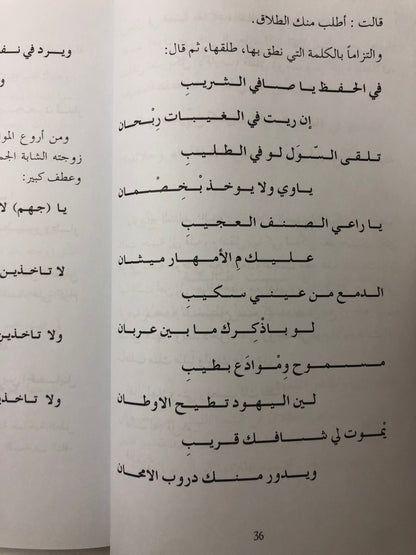 قالت : أطلب منك الطلاق.
والتزاماً بالكلمة التي نطق بها، طلقها، ثم قال:
في الحفظ يا صافي الشريبِ
إن ريت في الغيبات رِبْحان
تلقى السّوَل لو في الطليبِ
ياوي ولا يوخذ بْخِصْمان
يا راعي الصنف العجيبِ
عليك مِ الأمهار ميشان
الدمع من عيني سكيبِ
لو باذْكِرك ما بين عربان
مسموح ومْوادَع بطيبِ
لين اليهود تطيح الاوطان
يْموت لي شافك قريبِ
ويدور منك دروب الامحان
36
ويرد في نفـ
و
ومن أروع الموا
زوجته الشابة الجمـ
وعطف كبير:
يا (جهم) لا
لا تاخذين
ولا تاخذين
ولا تاخذين